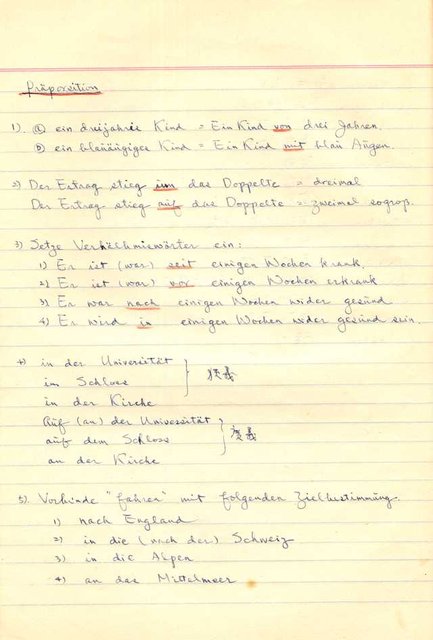 Präposition
1). a) ein dreijahrie Kind = Ein Kind von drei Jahren.
b) ein blauäugiger Kind = Ein Kind mit blau Augen.
2) Der Ertrag stieg um das Doppelte = dreimal
Der Ertrag stieg auf das Doppelte = zweimal sogrop.
3) Setze Verhältniswörter ein:
1) Er ist (war) seit einigen Wochen krank.
2) Er ist (war) vor einigen Wochen erkrank
3) Er war nach einigen Wochen wider gesund
4) Er wird in einigen Wochen wider gesund sein.
4) in der Universität
im Schloss
狭義
in der Kirche
Auf (an) der Universität
auf dem Schloss
広義
an der Kirche
5). Verbinde "fahren" mit folgenden Zielbestimmung.
1) nach England
2) in die (nach der) Schweiz
3) in die Alpen
4) an das Mittelmeer